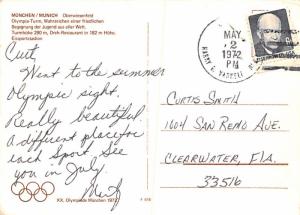 MÜNCHEN / MUNICH Oberwiesenfeld
Olympia-Turm, Wahrzeichen einer friedlichen
Begegnung der Jugend aus aller Welt.
Turmhöhe 290 m, Dreh-Restaurant in 182 m Höhe.
Eissportstadion
Curt,
Went to the summer
Olympic sight.
Really beautiful.
A diffent place for
each Sport. See
you in July.
XX. Olympiade München 1972
MAY
2
1972
PM
HARRY
CURTIS SMITH
1604 SAN REMO AVE.
CLEARWATER, FLA.
33516